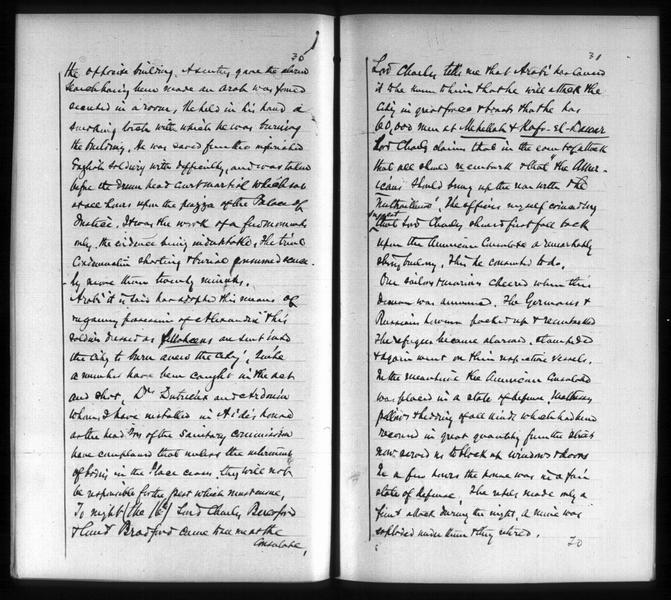 30
the opposite building. A sentry gave the alarm
search having been made an Arab was found
secreted in a room, He held in his hand a
smoking torch with which he was burning
the building. He was saved from the infuriated
English soldiery with difficulty, and was taken
before the Drum head Court martial which sat
at all hours upon the piazza of the Palace of
Justice. It was the work of a few moments
only. the evidence being indubitable, The trial
Condemnation shooting & burial consumed scarce-
ly more than twenty minutes.
Arabi it is said has adopted this means of
regaining possession of Alexandria & his
soldiers dressed as fellaheens are sent into
the City to burn across the City. Quite
a number have been caught in the act
and shot. Drs Dutrieux and Ardouin
whom I have installed in Aide's house
as the head Drs of the Sanitary commission
have complained that unless the interring
of bodies in the Place cease, they will not
be responsible for the pest which must ensue,
To night (the 16th) Lord Charles Beresford
& Lieut Bradford came to me at the
Consulate,
31
Lord Charles tells me that Arabi has caused
it to be known to him that he will attack the
City in great force & boasts that he has
60,000 men at Mehallah & Kafr-el-Dawar
Lord Charles claims that in the event of attack
that all should reembark & that "the Amer-
icans should bring up the rear with the
Nutcrackers". The officers myself
suggest
that Lord Charles should first fall back
upon the American Consulate a remarkably
strong building. This he consented to do.
Our sailors & marines cheered when this
decision was announced. The Germans &
Russians having packed up & reembarked
The refugees became alarmed, stampeded
& again went on their respective vessels.
In the meantime the American Consulate
was placed in a state of defense. Mattresses
pillows & bedding of all kinds which had been
received in great quantity from the
now served us to block up windows & doors
In a few hours the house was in a fair
state of defense, The rebels made only a
feint attack during the night, a mine was
exploded under them & they retired.
20